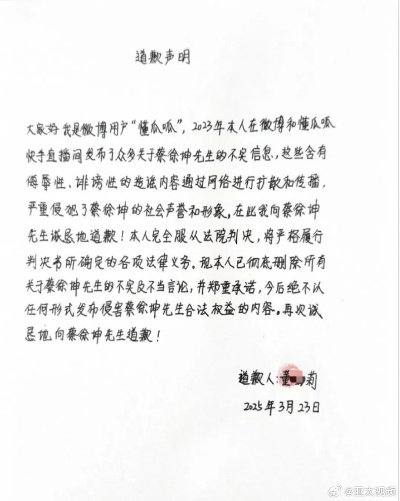 道歉声明
大家好我是微博用户“懂瓜呱”,2023年本人在微博和懂瓜呱
快手直播间发布了众多关于蔡徐坤先生的不实信息,这些含有
侮辱性、诽谤性的造谣内容通过网络进行扩散和传播,
严重侵犯了蔡徐坤的社会声誉和形象。在此我向蔡徐坤
先生诚恳地道歉!本人完全服从法院判决,将严格履行
判决书所确定的各项法律义务。现本人已彻底删除所有
关于蔡徐坤先生的不实及不当言论,并郑重承诺,今后绝不以
任何形式发布侵害蔡徐坤先生合法权益的内容。再次诚
恳地向蔡徐坤先生道歉!
道歉人:董 莉
2025年3月23日
@亚文视频